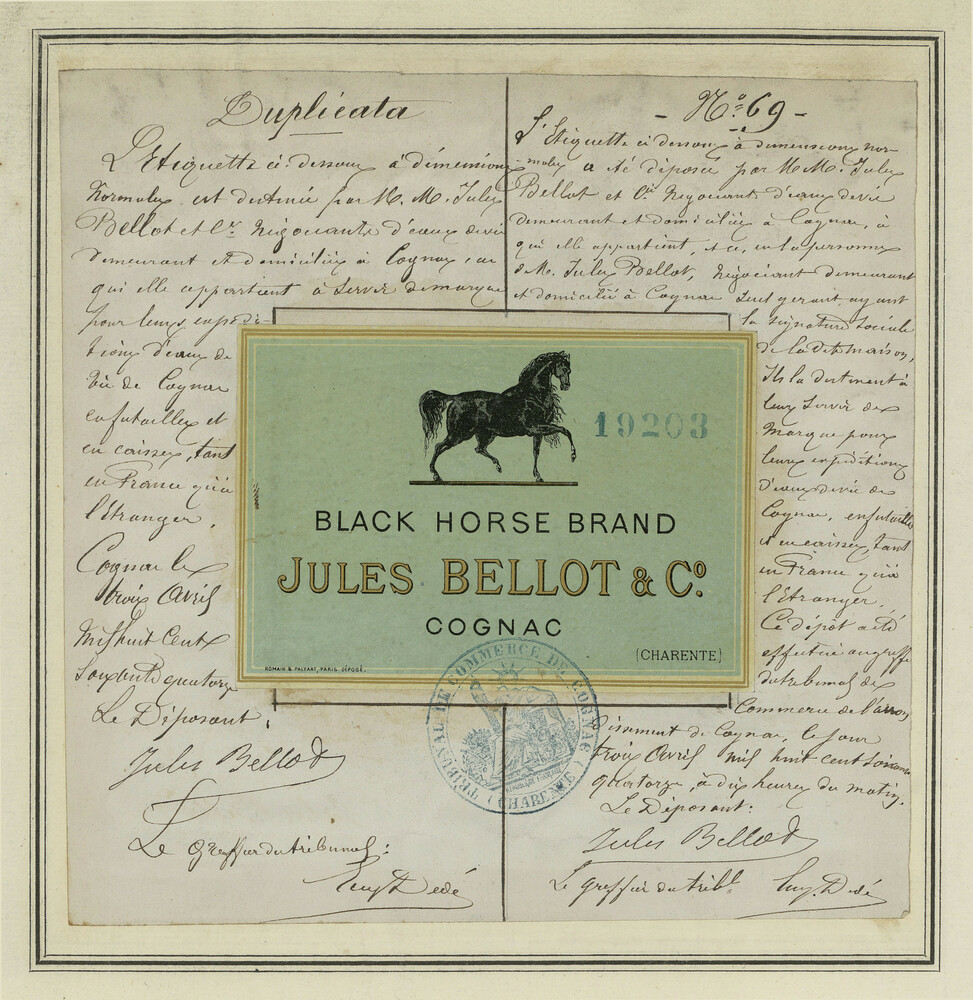 Duplicata
L'Etiquette ci-dessous à dimensions
Normales est destinée par M. M. Jules
Bellot et Cie Négociants d'eaux de vie
demeurant et domiciliés à Cognac, au
qui elle appartient à servir de marque
pour leurs expédi-
tions d'eaux de
vie de Cognac
en futailles et
en caisses, tant
en France qu'à
l'Etranger.
Cognac le
trois Avril
Mil huit Cent
Soixante quatorze
Le Déposant,
Jules Bellot
Le Greffier du tribunal:
- No. 69 -
L'Etiquette ci dessous à dimensions nor-
-males a été déposée par M. M. Jules
Bellot et Cie Négociants d'eaux de vie
demeurant et domiciliés à Cognac, à
qui elle appartient, et ce, en la personne
de M. Jules Bellot, Négociant demeurant
et domicilié à Cognac Seul gérant ayant
la signature sociale
de la dite maison,
Ils la destinent à
leur servir de
Marque pour
leurs expéditions
d'eaux de vie de
Cognac, en futailles
et en caisses, tant
en France qu'à
l'Etranger.
Ce dépôt a été
effectué au greffe
du tribunal de
Commerce de l'arron
dissement de Cognac, le jour
trois Avril mil huit cent soixante
quatorze, à dix heures du matin.
Le Déposant:
Jules Bellot
Le greffier du tribl.
19203
BLACK HORSE BRAND
JULES BELLOT & Co.
COGNAC
(CHARENTE)
ROMAIN & PALYART, PARIS. DÉPOSÉ.
TRIBUNAL DE COMMERCE DE COGNAC
(CHARENTE)